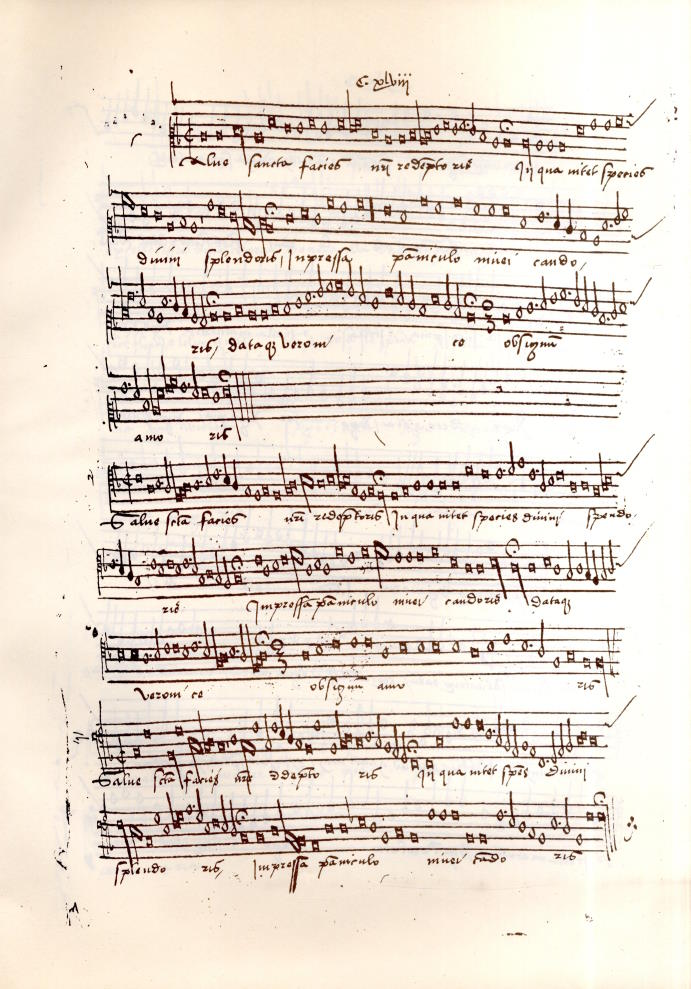 C. xlviii
alve sancta facies nrī redēpto ris In qua nitet species
divini splendoris Inpressa pāniculo nivei cando
ris, dataqȝ veroni ce ob signū
amo ris
2
Salve sctā facies nrī redēptoris In qua nitet species divini splendo
ris Impressa pāniculo nivei candoris dataqȝ
veroni ce ob signū amo ris
Salve sctā facies nrī ris In qua nitet spēs divini
splendo ris, Impressa pāniculo nivei cādo ris